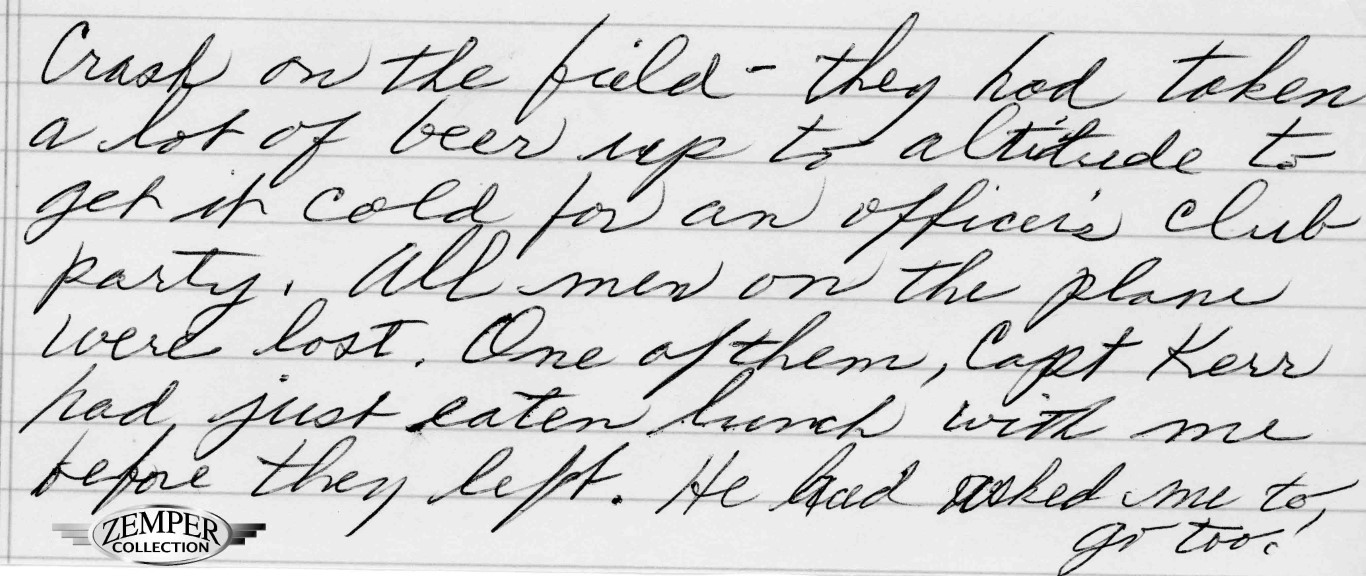 Crash on the field - they had taken
a lot of beer up to altitude to
get it cold for an officer's club
party. All men on the plane
were lost. One of them, Capt Kerr
had just eaten lunch with me
before they left. He had asked me to
go too.
ZEMPER
COLLECTION